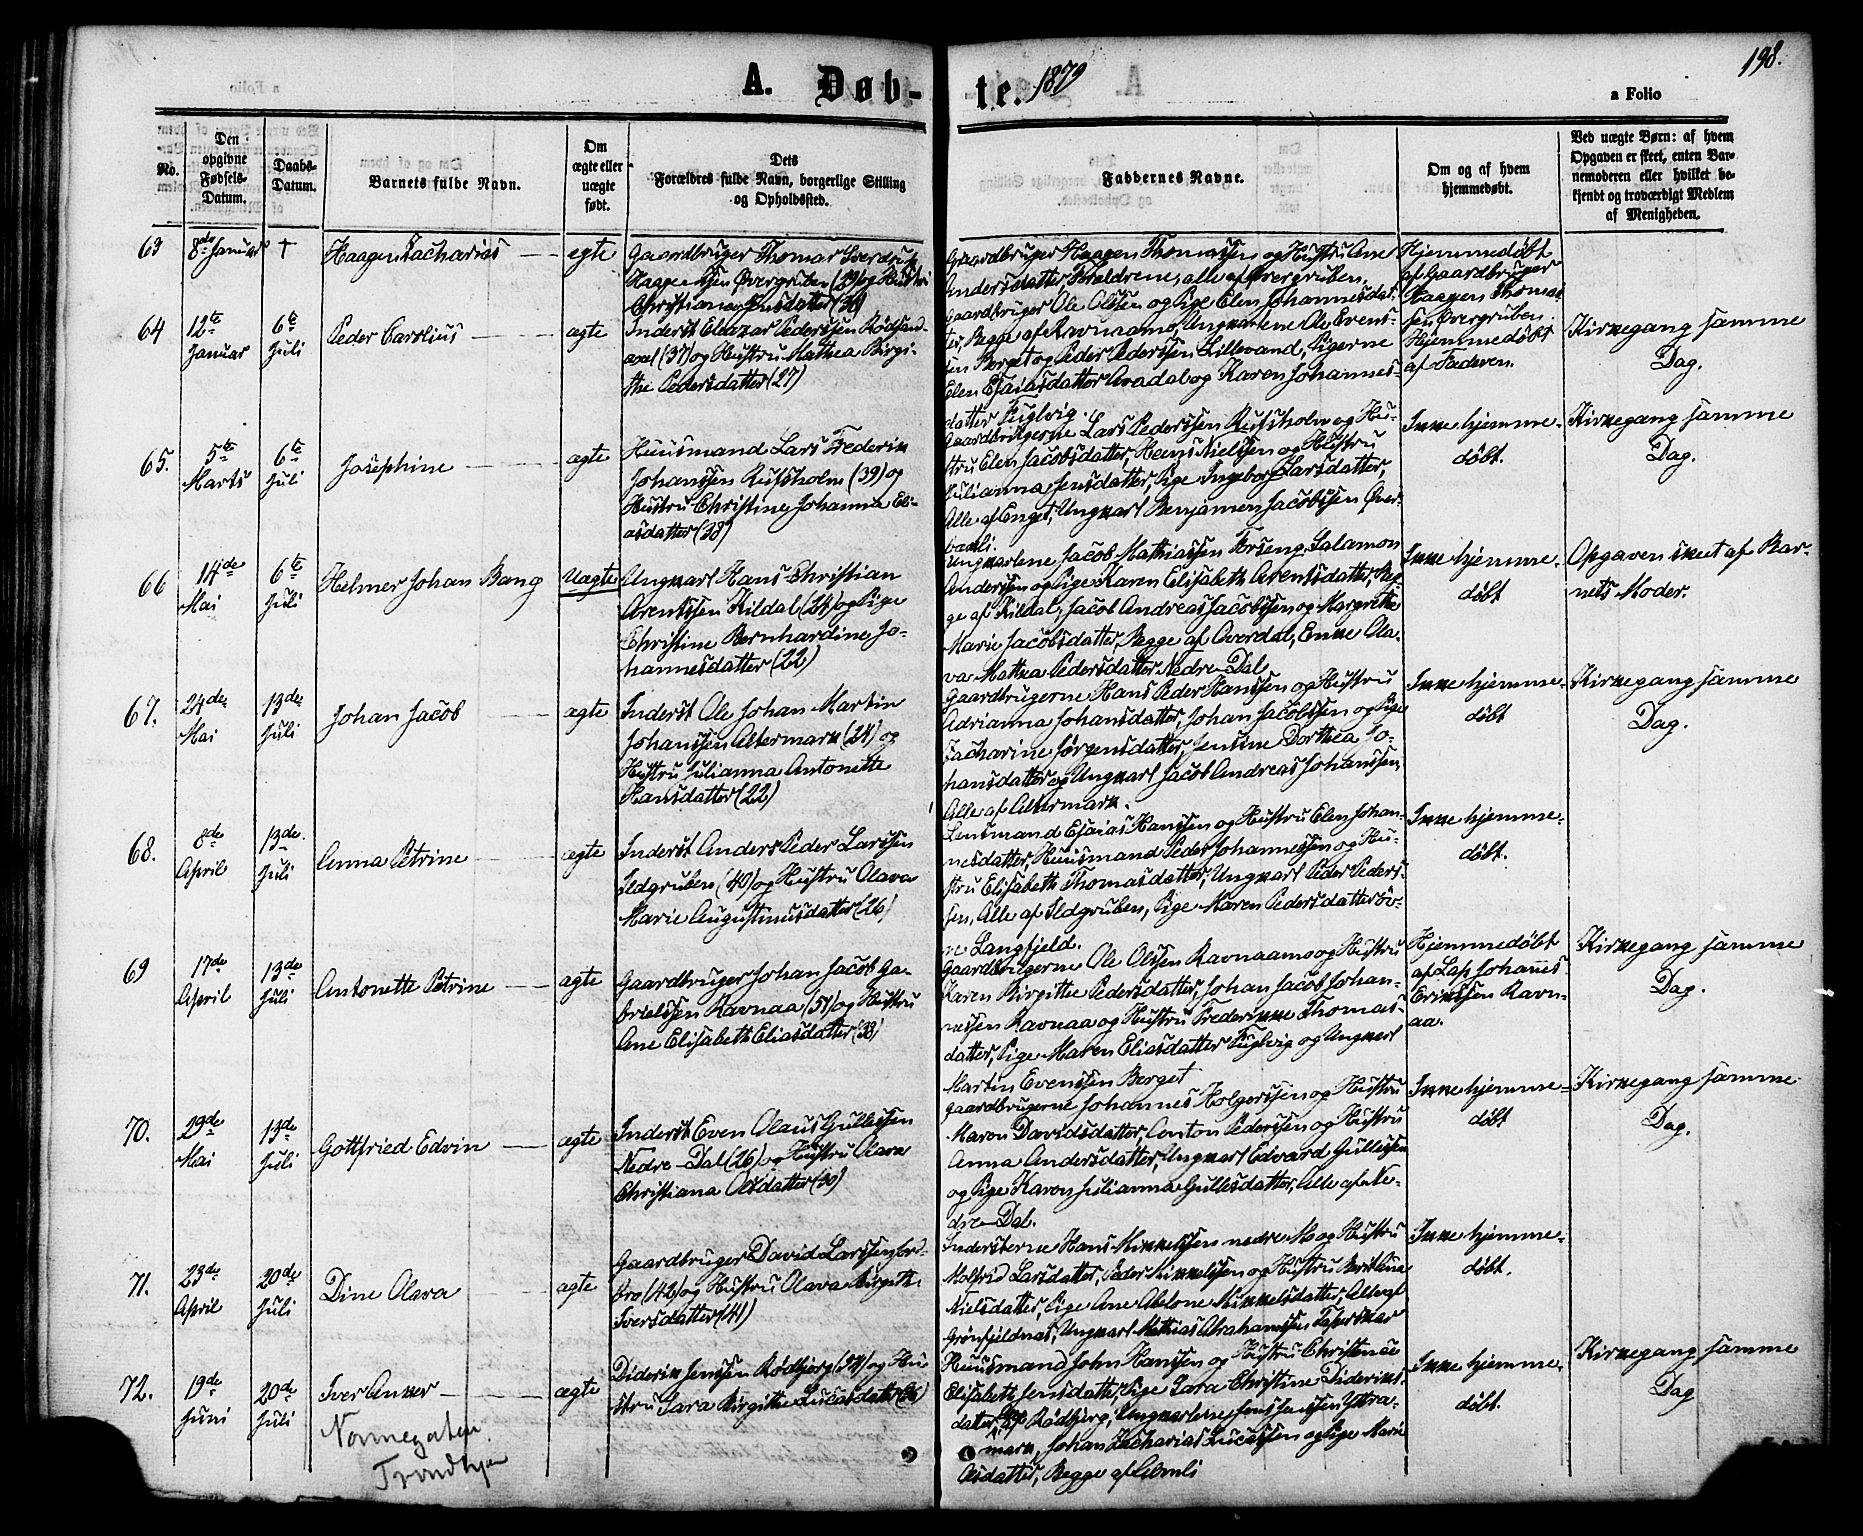 198.
A. Døb-
te. 1879
a Folio
No.
Den
opgivne
Fødsels-
Datum.
Daabs-
Datum.
Barnets fulde Navn.
Om
ægte eller
uægte
født.
Dets
Forældres fulde Navn, borgerlige Stilling
og Opholdssted.
Faddernes Navne.
Om og af hvem
hjemmedøbt.
Ved uægte Børn: af hvem
Opgaven er skeet, enten Bar-
nemoderen eller hvilket be-
kjendt og troværdigt Medlem
af Menigheden.
63
8de Januar
†
Haagen Zacharias
egte
Gaardbruger Thomas Sverdrup
Haagensen Øvergruben (39) og Hustru
Christiane
Gaardbruger Haagen Thomassen og Hustru Ane
Andersdatter, Forældrene, alle af Øvergruben,
Gaardbruger Ole Olssen og Pige Elen Johannesdat-
Hjemmedøbt
af Gaardbruger
Haagen Thomas-
sen Øvergruben.
64
12te
Januar
6te
Juli
Peder Carolius
ægte
Inderst Eleazar Pederssen Rødsand-
axel (37) og Hustru Mathea Birgi-
the Pedersdatter (27)
ter, Begge af Ravnaamo, Ungkarlene Ole Evens-
sen Berget og Peder Pederssen Lillevand, Pigerne
Elen Esaiasdatter Avadal og Karen Johannes-
datter Fuglvig.
Hjemmedøbt
af Faderen.
Kirkegang samme
Dag.
65.
5te
Marts
6te
Juli
Josephine
ægte
Huusmand Lars Frederik
Johanssen Rufsholm (39) og
Hustru Christine Johanna Eli-
asdatter (38)
Gaardbrugerne Lars Pederssen Rufsholm og Hu-
stru Elen Jacobsdatter, Heins Nielssen og Hustru
Julianna Jensdatter, Pige Ingeborg Larsdatter,
Alle af Enget, Ungkarl Benjamen Jacobssen Øver-
Ikke hjemme-
døbt.
Kirkegang samme
Dag.
66
14de
Mai
6te
Juli
Helmer Johan Bang
Uægte
Ungkarl Hans Christian
Arentssen Kildal (24) og Pige
Christine Bernhardine Jo-
hannesdatter (22)
Ungkarlene Jacob Mathiassen Forseng, Salamon
Anderssen og Pige Karen Elisabeth Arentsdatter, Beg-
ge af Kildal, Jacob Andreas Jacobssen og Margrethe
Marie Jacobsdatter, Begge af Overdal, Enke Ola-
va Mathea Pedersdatter Nedre-Dal
Ikke hjemme-
døbt
Opgaven skeet af Bar-
nets Moder.
67.
24de
Mai
13de
Juli
Johan Jacob
ægte
Inderst Ole Johan Martin
Johanssen Altermark (24) og
Hustru Julianna Antonette
Hansdatter (22)
Gaardbrugerne Hans Peder Hanssen og Hustru
Adrianna Johansdatter, Johan Jacobssen og Pige
Zacharine Jørgensdatter, Jensine Dorthea Jo-
hansdatter og Ungkarl Jacob Andreas Johanssen,
Alle af Altermark.
Ikke hjemme-
døbt
Kirkegang samme
Dag.
68.
8de
April
13de
Juli
Anna Petrine
ægte
Inderst Anders Peder Larssen
Ildgruben (40) og Hustru Olava
Marie Augustinusdatter (26)
Lensmand Esaias Hanssen og Hustru Elen Johan-
nesdatter, Huusmand Peder Johannessen og Hu-
stru Elisabeth Thomasdatter, Ungkarl Peder Peders-
sen, Alle af Ildgruben, Pige Maren Pedersdatter øv-
re Langfjeld.
Ikke hjemme-
døbt.
69
17de
April
13de
Juli
Antonette Petrine
ægte
Gaardbruger Johan Jacob Ga-
brielssen Ravnaa (51) og Hustru
Ane Elisabeth Eliasdatter (33)
Gaardbrugerne Ole Olssen Ravnaamo og Hustru
Karen Birgitthe Pedersdatter, Johan Jacob Johan-
nessen Ravnaa og Hustru Frederikke Thomas-
datter, Pige Maren Eliasdatter Fuglvig og Ungkarl
Martin Evenssen Berget
Hjemmedøbt
af Lap Johannes
Erikssen Ravn-
aa.
Kirkegang samme
Dag.
70.
29de
Mai
13de
Juli
Gottfried Edvin
ægte
Inderst Even Olaus Gullessen
Nedre-Dal (26) og Hustru Olava
Christiana Olsdatter (30)
Gaardbrugerne Johannes Holgerssen og Hustru
Maren Davidsdatter, Anton Pederssen og Hustru
Anna Andersdatter, Ungkarl Edvard Gullessen
og Pige Karen Julianna Gullesdatter, Alle af Ne-
dre-Dal.
Ikke hjemme-
døbt
Kirkegang samme
Dag.
71.
23de
April
20de
Juli
Dine Olava
ægte
Gaardbruger David Larssen Jord-
bro (42) og Hustru Olava Birgithe
Iversdatter (41)
Inderstene Hans Mikkelssen nedre Mo og Hustru
Molfrid Larsdatter, Peder Mikkelssen og Hustru Berit Ana
Nielsdatter, Pige Ane Abelone Mikkelsdatter, Alle af
Grønfjeldnas, Ungkarl Mathias Abrahamssen
Ikke hjemme-
døbt.
72.
19de
Juni
20de
Juli
Iver Anker
Nonnegaten.
Trondhjem
ægte
Diderik Jenssen Rødbjerg (34) og Hu-
stru Sara Birgitthe Lucasdatter (26)
Huusmand John Hanssen og Hustru
Elisabeth Jensdatter, Pige Sara Christine Dideriks-
datter, af Rødbjerg, Ungkarlene Jens Jenssen Yttra-
mark, Johan Zacharias Lucassen og Pige Marie
Olsdatter, Begge af
Ikke hjemme-
døbt.
Kirkegang samme
Dag